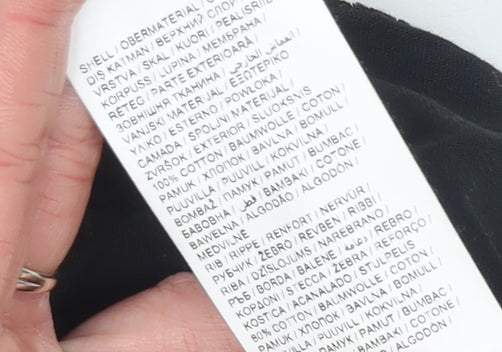 SHELL / OBERMATERIAL /
DIŞ KATMAN / ВЕРХНИЙ СЛОЙ
VRSTVA / SKAL / KUORI / PEALISRIIE
KORPUSS / LUPINA / МЕМБРАНА /
RÉTEG / PARTE EXTERIOARĂ /
ЗОВНІШНЯ ТКАНИНА / القماش الخارجي /
VANJSKI MATERIJAL / ΕΞΩΤΕΡΙΚΟ
ΥΛΙΚΟ / ESTERNO / POWŁOKA /
CAMADA / SPOLJNI MATERIJAL /
ZVRŠOK / EXTERIOR / SLUOKSNIS
100% COTTON / BAUMWOLLE / COTON /
PAMUK / ХЛОПОК / BAVLNA / BOMULL /
PUUVILLA / PUUVILL / KOKVILNA /
BOMBAŽ / ПАМУК / PAMUT / BUMBAC /
БАВОВНА / قطن / ΒΑΜΒΑΚΙ / COTONE /
BAWEŁNA / ALGODÃO / ALGODÓN /
MEDVILNĖ
RIB / RIPPE / RENFORT / NERVÜR /
РУБЧИК / ŽEBRO / REVBEN / RIBBI /
RIBA / DZĪSLOJUMS / NAREBRANO /
РЪБ / BORDA / BALENE / دعامة / REBRO /
КОРДОНІ / STECCA / ŻEBRA / REFORÇO /
KOSTICA / ACANALADO / STULPELIS
80% COTTON / BAUMWOLLE / COTON /
PAMUK / ХЛОПОК / BAVLNA / BOMULL /
PUUVILL / KOKVILNA /
ПАМУК / PAMUT / BUMBAC /
ΒΑΜΒΑΚΙ / COTONE /
ALGODÓN /